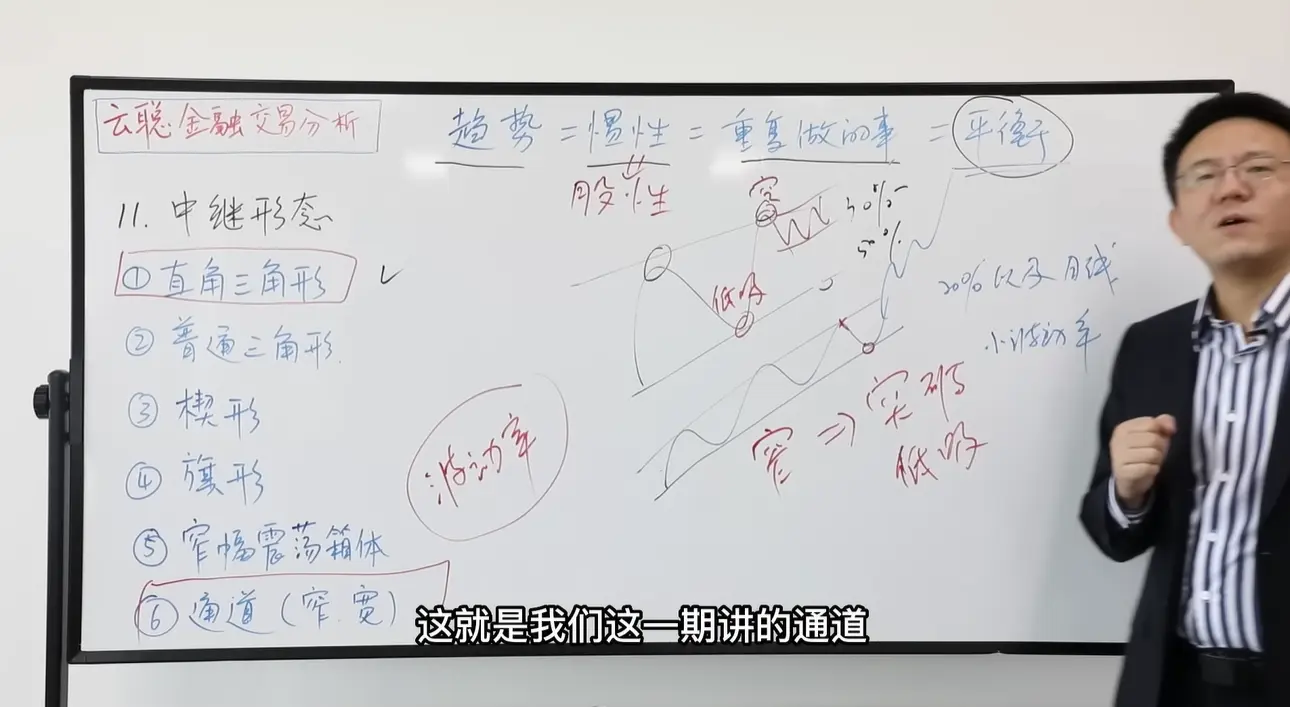 云聪金融交易分析
趋势 = 惯性 = 重复做的事 = 平衡
股性
11. 中继形态
① 直角三角形 ✓
② 普通三角形
③ 楔形
④ 旗形
⑤ 窄幅震荡箱体
⑥ 通道(窄.宽)
波动率
低吸
50%
20%以及月线
小波动率
窄 => 突破
低吸
这就是我们这一期讲的通道